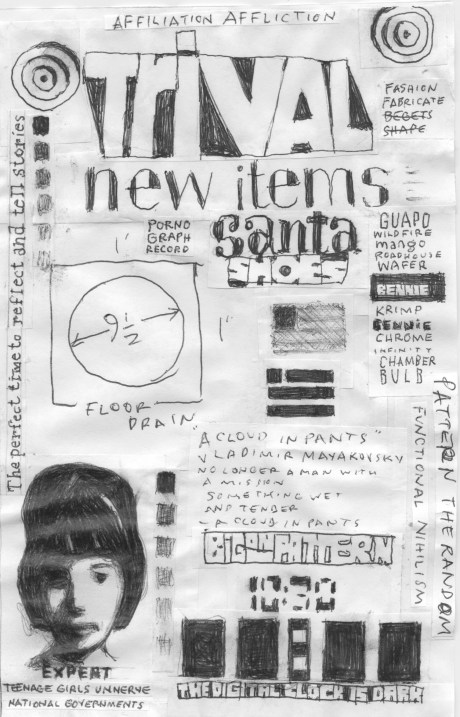 AFFILIATION AFFLICTION
TRIVAL
FASHION
FABRICATE
BEGETS
SHAPE
new items
santa
SHOES
PORNO
GRAPH
RECORD
GUAPO
WILDFIRE
mango
ROADHOUSE
WAFER
BENNIE
KRIMP
BENNIE
CHROME
INFINITY
CHAMBER
BULB
The perfect time to reflect and tell stories
1"
1"
9 1/2
FLOOR
DRAIN
"A CLOUD IN PANTS"
VLADIMIR MAYAKOVSKY
NO LONGER A MAN WITH
A MISSION
SOMETHING WET
AND TENDER
- A CLOUD IN PANTS
PATTERN THE RANDOM
FUNCTIONAL NIHILISM
THE DIGITAL CLOCK IS DARK
EXPERT
TEENAGE GIRLS UNNERVE
NATIONAL GOVERNMENTS